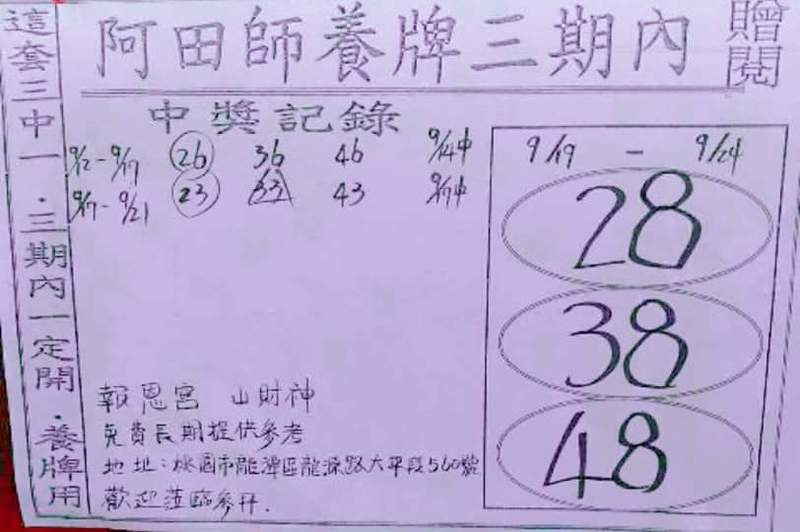 阿田師養牌三期內
贈閱
這套三中一．三期內一定開．養牌用
中獎記錄
9/12-9/17 26 36 46 9/14中
9/17-9/21 23 33 43 9/17中
9/19 - 9/24
28
38
48
報恩宮 山財神
免費長期提供參考
地址:桃園市龍潭區龍源路大平段560號
歡迎蒞臨參拜.